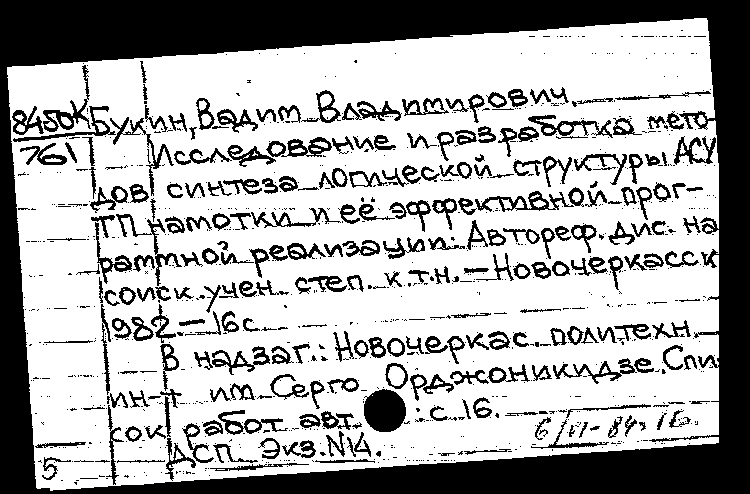 8450К
761
Букин, Вадим Владимирович.
Исследование и разработка мето-
дов синтеза логической структуры АСУ
ТП намотки и её эффективной прог-
раммной реализации: Автореф. дис. на
соиск. учен. степ. к.т.н. — Новочеркасск
1982. — 16 с
В надзаг.: Новочеркас. политехн.
ин-т им Серго Орджоникидзе. Спи
сок работ авт : с 16.
ДСП. Экз. N14.
6/VI - 84г
5